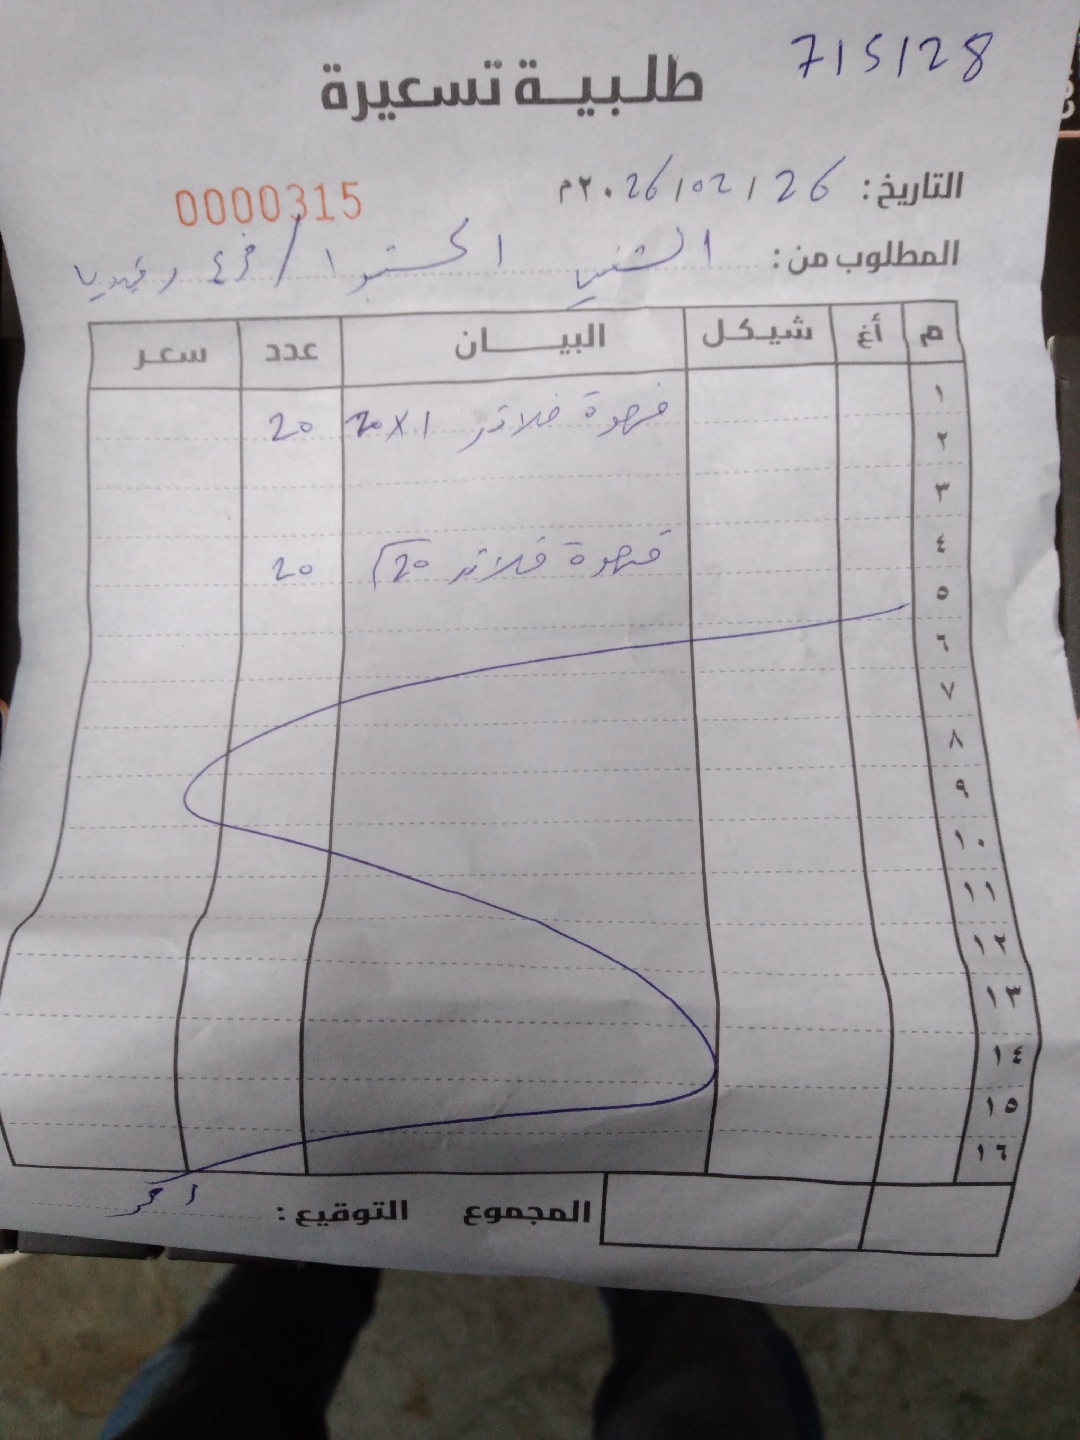 715128
طلبية تسعيرة
التاريخ: 26 / 02 / 2026م
0000315
المطلوب من: / فرع رفيديا
م أغ شيكل البيان عدد سعر
١ قهوة فلاتر 1×20 20
٢
٣
٤ قهوة فلاتر 20 20
٥
٦
٧
٨
٩
١٠
١١
١٢
١٣
١٤
١٥
١٦
المجموع التوقيع: